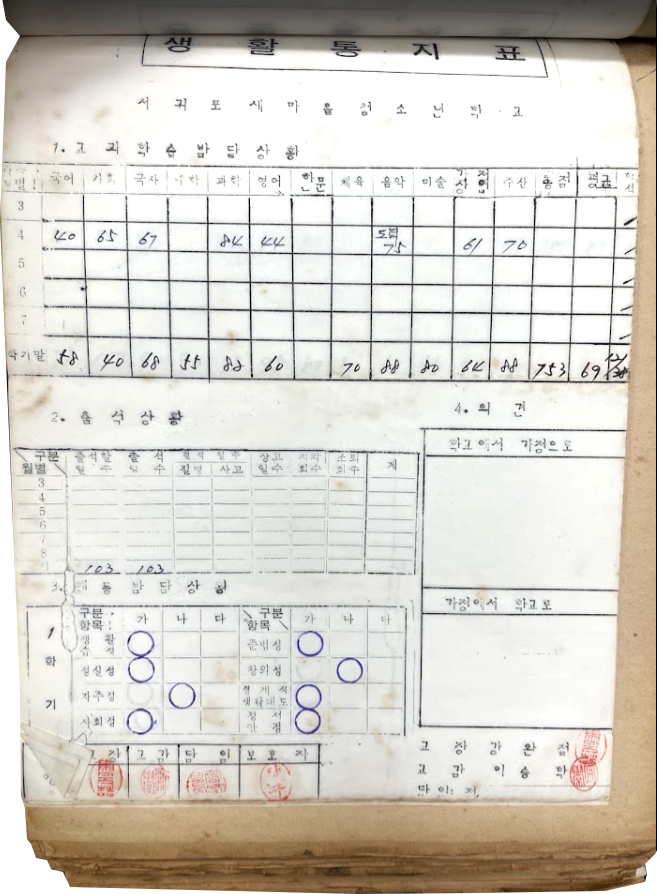 생 활 통 지 표
서 귀 포 새 마 음 청 소 년 학 교
1. 교 과 학 습 발 달 상 황
월별 국어 사회 국사 수학 과학 영어 한문 체육 음악 미술 상업 주산 총점 평균 석차
3
4 40 65 67 84 44 도덕 75 61 70
5
6
7
학기말 58 40 68 55 82 60 70 88 80 64 88 753 69
2. 출 석 상 황
구분 월별 출석할 일수 출석 일수 결석 일수 질병 사고 상고 일수 지각 회수 조퇴 회수 계
3
4
5
6
7
8
103 103
3. 행 동 발 달 상 황
1 학 기
구분 항목 가 나 다 구분 항목 가 나 다
생활 습성 ○ 준법성 ○
성실성 ○ 창의성 ○
자주성 ○ 경제적 생활태도 ○
사회성 ○ 정서 안정 ○
교장 교감 담임 보호자
인
4. 의 견
학교에서 가정으로
가정에서 학교로
교 장 강 완 접
교 감 이 승 학
담 임: